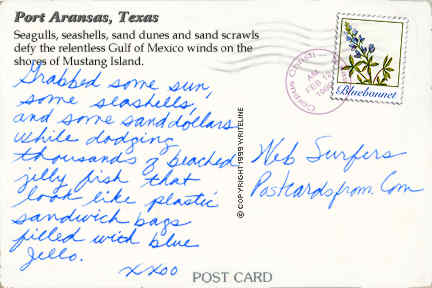 Port Aransas, Texas
Seagulls, seashells, sand dunes and sand scrawls
defy the relentless Gulf of Mexico winds on the
shores of Mustang Island.
Grabbed some sun,
some seashells,
and some sand dollars
while dodging
thousands of beached
jelly fish that
look like plastic
sandwich bags
filled with blue
Jello.
xxoo
Web Surfers
Postcardsfrom.Com
© COPYRIGHT 1999 WRITELINE
Corpus Christi
AM
FEB
Bluebonnet
POST CARD